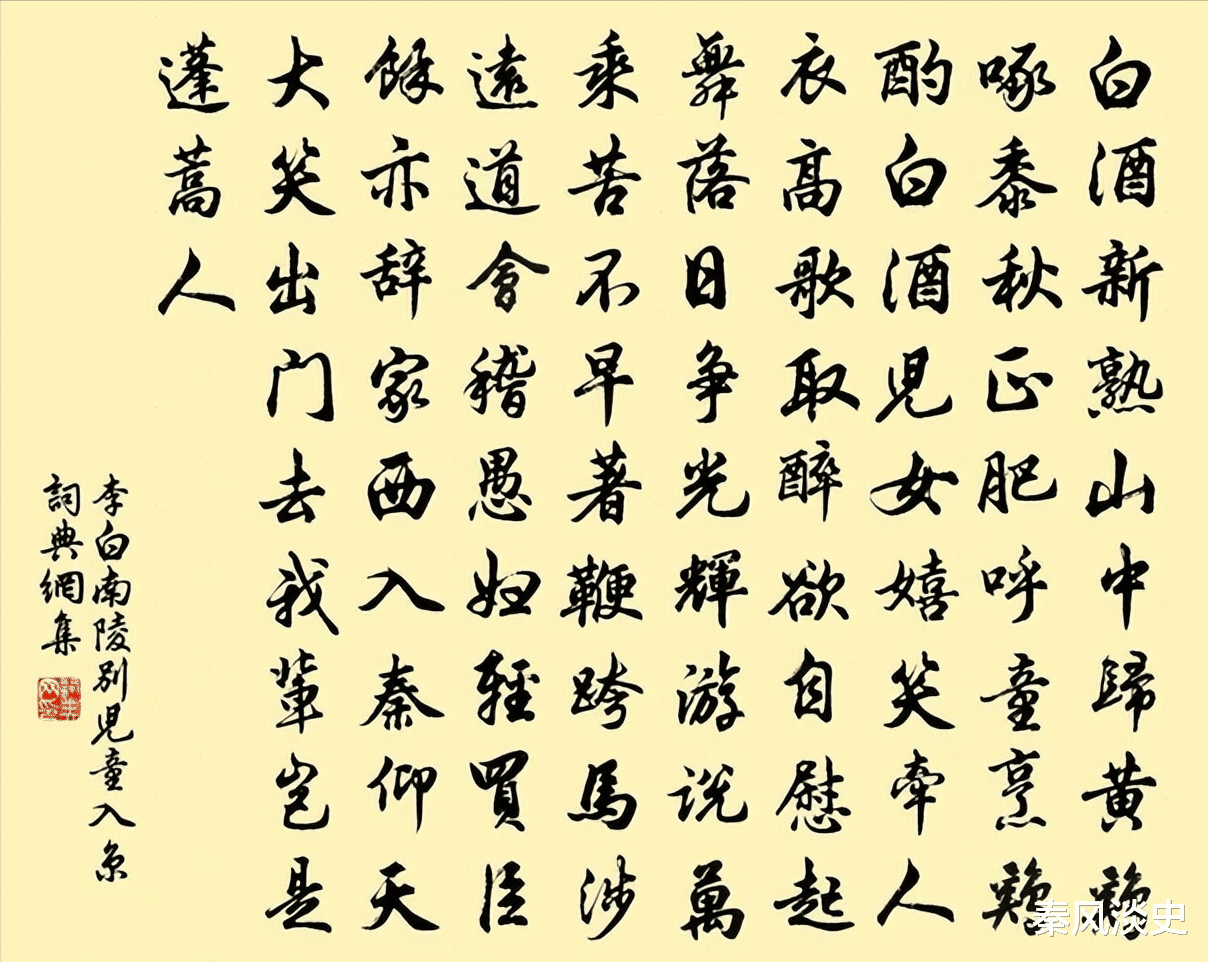 白酒新熟山中歸黃鷄
啄黍秋正肥呼童烹鷄
酌白酒兒女嬉笑牽人
衣高歌取醉欲自慰起
舞落日爭光輝游說萬
乘苦不早著鞭跨馬涉
遠道會稽愚婦輕買臣
餘亦辭家西入秦仰天
大笑出門去我輩豈是
蓬蒿人
李白南陵別兒童入京
詞典網集
秦风淡史